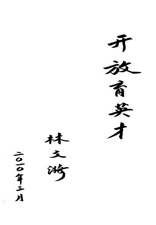 开放育英才
林文漪
二〇一〇年二月